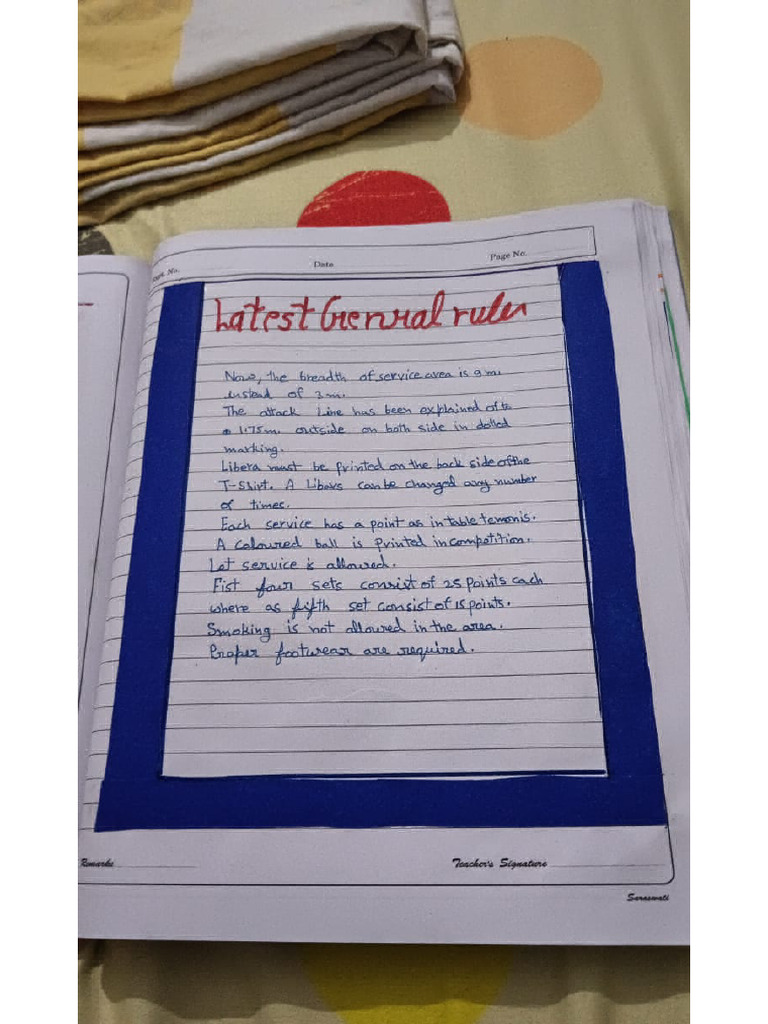 Expt. No.
Date
Page No.
Latest Genral rules
Now, the breadth of service area is 9 m.
instead of 3 m.
The attack Line has been explained of to
1.75m. outside on both side in dolled
marking.
Libera must be printed on the back side of the
T-Shirt. A Libars can be changed any number
of times.
Each service has a point as in table temonis.
A coloured ball is printed in competition.
Let service is alloured.
Fist four sets consist of 25 points each
where as fifth set consist of 15 points.
Smoking is not alloured in the area.
Proper footwear are required.
Remarks
Teacher's Signature
Saraswati